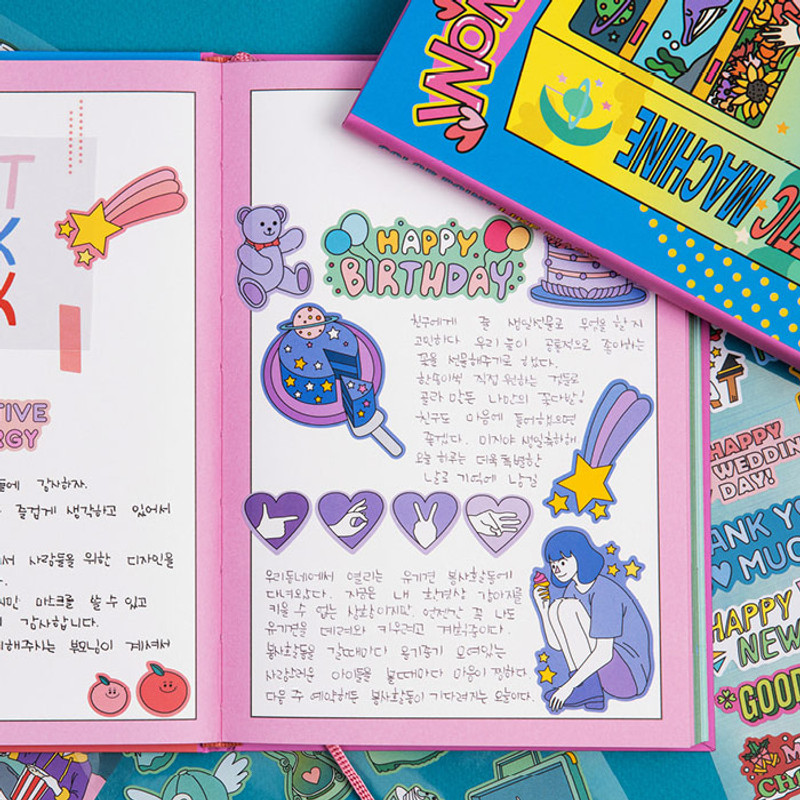 T
K
K
TIVE
RGY
들에 감사하자.
즐겁게 생각하고 있어서
서 사람들을 위한 디자인을
지만 마스크를 쓸 수 있고
감사합니다.
해해주시는 부모님이 계셔서
HAPPY
BIRTHDAY
친구에게 줄 생일선물로 무엇을 할지
고민하다 우리 둘이 공통적으로 좋아하는
꽃을 선물해주기로 했다.
한송이씩 직접 원하는 것들로
골라 만든 나만의 꽃다발!
친구도 마음에 들어했으면
좋겠다. 미지야 생일축하해.
오늘 하루는 더욱 특별한
날로 기억에 남길
우리동네에서 열리는 유기견 봉사활동에
다녀왔다. 지금은 내 환경상 강아지를
키울 수 없는 상황이지만 언젠간 꼭 나도
유기견을 데려와 키우려고 계획중이다.
봉사활동을 갈때마다 옹기종기 모여있는
사랑스러운 아이들을 볼때마다 마음이 찡하다.
다음 주 예약해둔 봉사활동이 기다려지는 오늘이다.
MACHINE
TIC
HAPPY
WEDDING
DAY!
ANK YO
MUC
HAPPY
NEW
GOOD